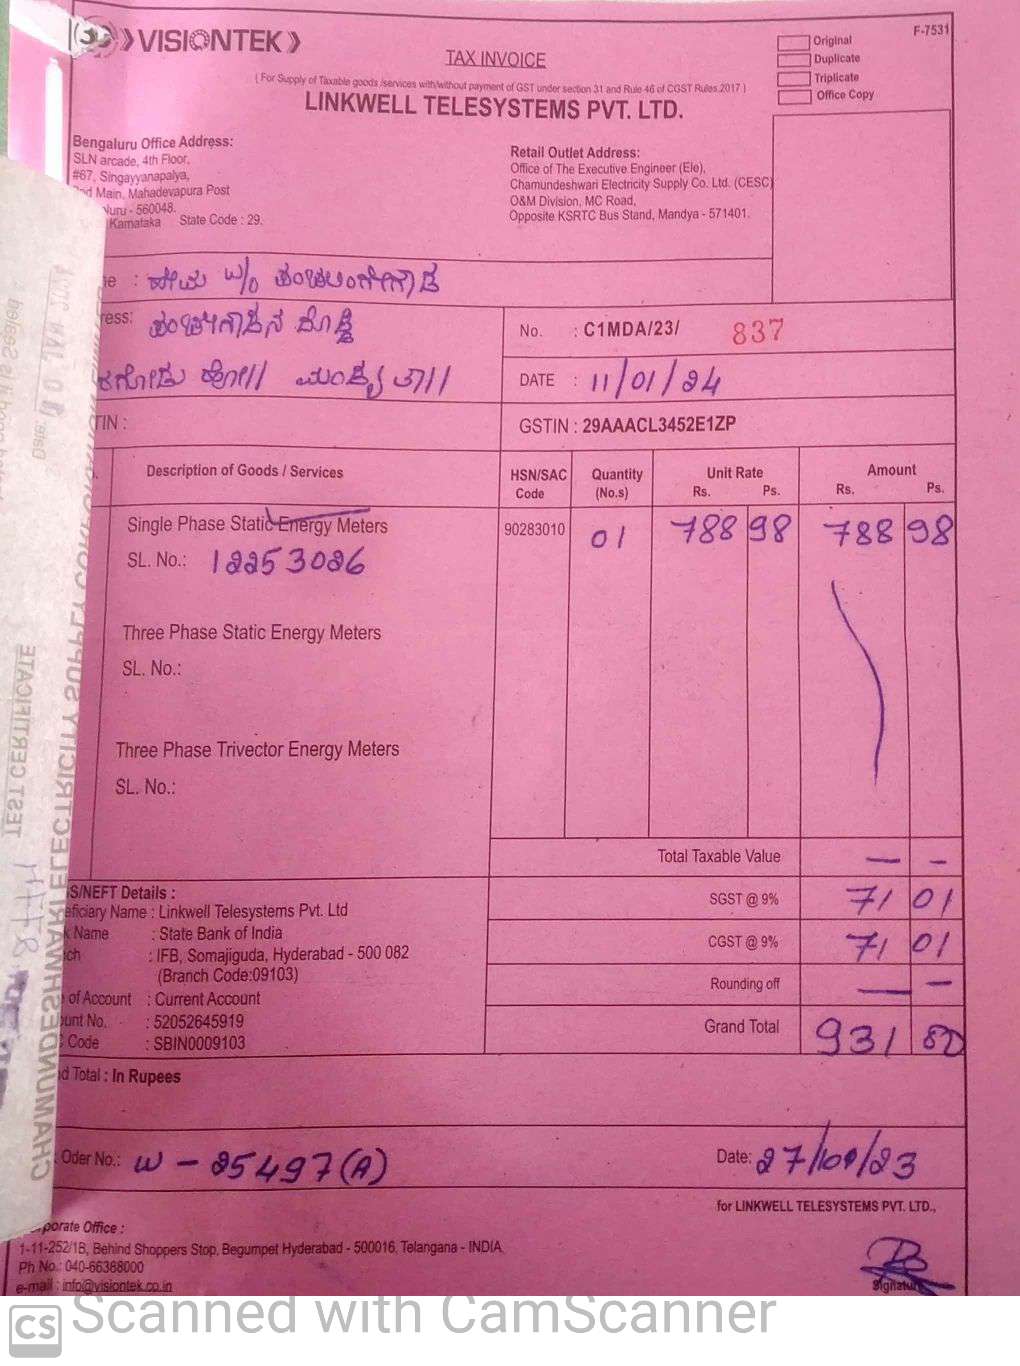 VISIONTEK
F-7531
TAX INVOICE
Original
Duplicate
Triplicate
Office Copy
( For Supply of Taxable goods /services with/without payment of GST under section 31 and Rule 46 of CGST Rules.2017 )
LINKWELL TELESYSTEMS PVT. LTD.
Bengaluru Office Address:
SLN arcade, 4th Floor,
#67, Singayyanapalya,
Main, Mahadevapura Post
- 560048.
Karnataka State Code : 29.
Retail Outlet Address:
Office of The Executive Engineer (Ele),
Chamundeshwari Electricity Supply Co. Ltd. (CESC)
O&M Division, MC Road,
Opposite KSRTC Bus Stand, Mandya - 571401.
: W/o
No. : C1MDA/23/ 837
ಮಂಡ್ಯ ತಾ||
DATE : 11/01/24
GSTIN : 29AAACL3452E1ZP
Description of Goods / Services HSN/SAC Code Quantity (No.s) Unit Rate Rs. Ps. Amount Rs. Ps.
Single Phase Static Energy Meters 90283010 01 788 98 788 98
SL. No.: 12253026
Three Phase Static Energy Meters
SL. No.:
Three Phase Trivector Energy Meters
SL. No.:
Total Taxable Value — –
SGST @ 9% 71 01
CGST @ 9% 71 01
Rounding off — –
Grand Total 931 00
S/NEFT Details :
eficiary Name : Linkwell Telesystems Pvt. Ltd
k Name : State Bank of India
ch : IFB, Somajiguda, Hyderabad - 500 082
(Branch Code:09103)
of Account : Current Account
unt No. : 52052645919
Code : SBIN0009103
d Total : In Rupees
Oder No.: W - 25497(A)
Date: 27/ /23
for LINKWELL TELESYSTEMS PVT. LTD.,
porate Office :
1-11-252/1B, Behind Shoppers Stop, Begumpet Hyderabad - 500016, Telangana - INDIA
Ph No.: 040-66388000
e-mail : info@visiontek.co.in
Signature
TEST CERTIFICATE
CHAMUNDESHWARI ELECTRICITY SUPPLY
CS Scanned with CamScanner